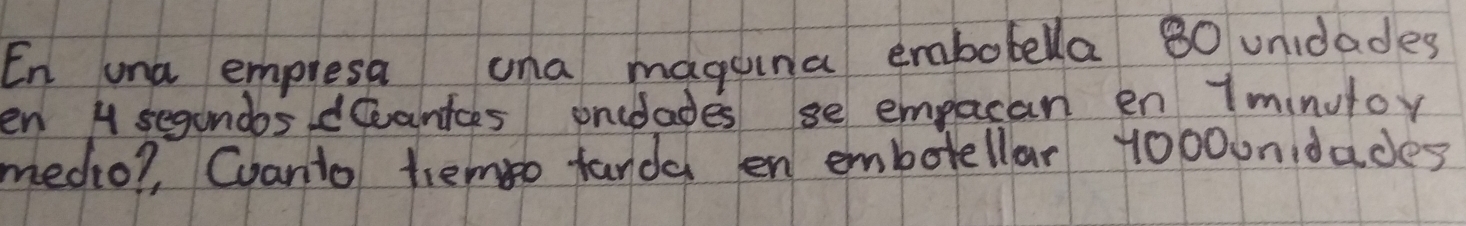 En una empresa una maquina embotella 80 unidades
en 4 segundos ¿Cuantas unidades se empacan en 1minutoy
medio?, Cuanto tiempo tarda en embotellar 4000unidades